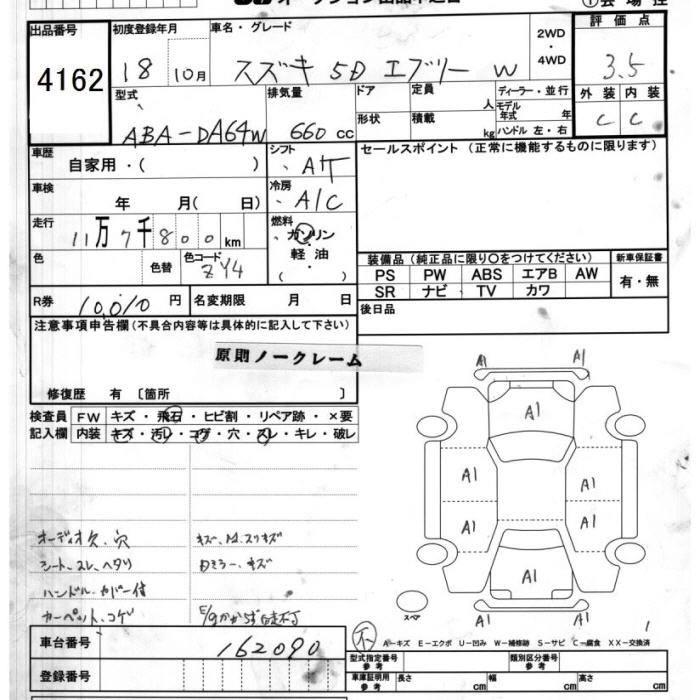 出品番号
4162
初度登録年月
18 10月
車名・グレード
スズキ 5D エブリー W
2WD
・
4WD
評価点
3.5
型式
ABA-DA64W
排気量
660 cc
ドア
形状
定員 人
積載 kg
ディーラー・並行
モデル年式 年
ハンドル 左・右
外装 内装
C C
車歴
自家用・( )
シフト
A/T
セールスポイント (正常に機能するものに限ります)
車検
年 月( 日)
冷房
A/C
走行
11万7千800km
燃料
ガソリン
軽油
( )
色
色替
色コード
ZY4
装備品 (純正品に限り○をつけてください)
PS PW ABS エアB AW
SR ナビ TV カワ
新車保証書
有・無
R券 10,010 円
名変期限 月 日
後日品
注意事項申告欄(不具合内容等は具体的に記入して下さい)
原則ノークレーム
修復歴 有 〔箇所 〕
検査員
記入欄
FW キズ・飛石・ヒビ割・リペア跡・×要
内装 キズ・汚レ・コゲ・穴・スレ・キレ・破レ
A1 A1
A1
A1 A1
A1 A1
A1
A1 A1
オーディオ欠、穴
シート、スレ、ヘタリ
ハンドル、カバー付
カーペット、コゲ
キズ、
スリキズ
ミラー、キズ
E/gかからず自走不可
スペア
不
A-キズ E-エクボ U-凹み W-補修跡 S-サビ C-腐食 XX-交換済
車台番号
162090
登録番号
型式指定番号
参考
類別区分番号
参考
車庫証明用
参考
長さ cm
幅 cm
高さ cm